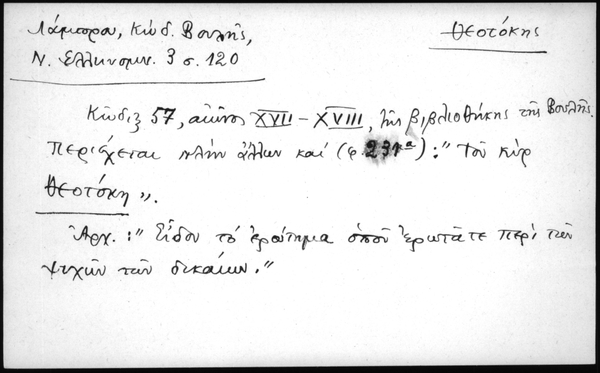 Λάμπρου, Κώδ. Βουλῆς,
Ν. Ἑλληνομν. 3 σ. 120
Θεοτόκης
Κῶδιξ 57, αἰῶνος XVII - XVIII, τῆς βιβλιοθήκης τῆς Βουλῆς.
Περιέχεται πλὴν ἄλλων καί (φ. 231α) : " Τοῦ κὺρ
Θεοτόκη ".
Ἀρχ. : " Εἶδον τὸ ἐρώτημα ὁποῦ ἐρωτᾶτε περὶ τῶν
ψυχῶν τῶν δικαίων. "